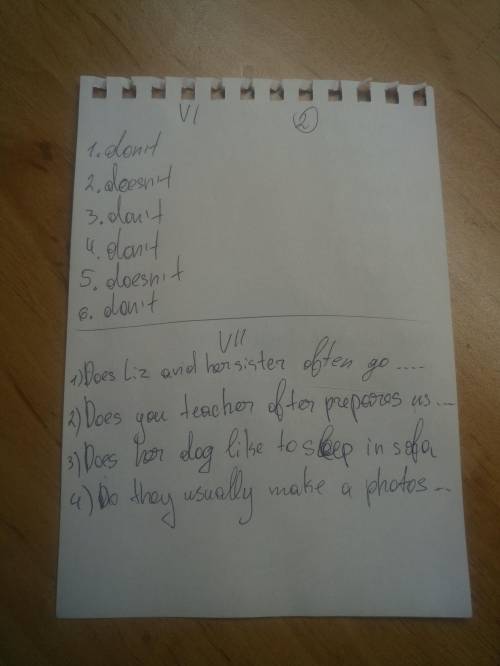 VI 2
1. don't
2. doesn't
3. don't
4. don't
5. doesn't
6. don't
VII
1) Does Liz and her sister often go ....
2) Does you teacher often prepares us ...
3) Does her dog like to sleep in sofa
4) Do they usually make a photos ...